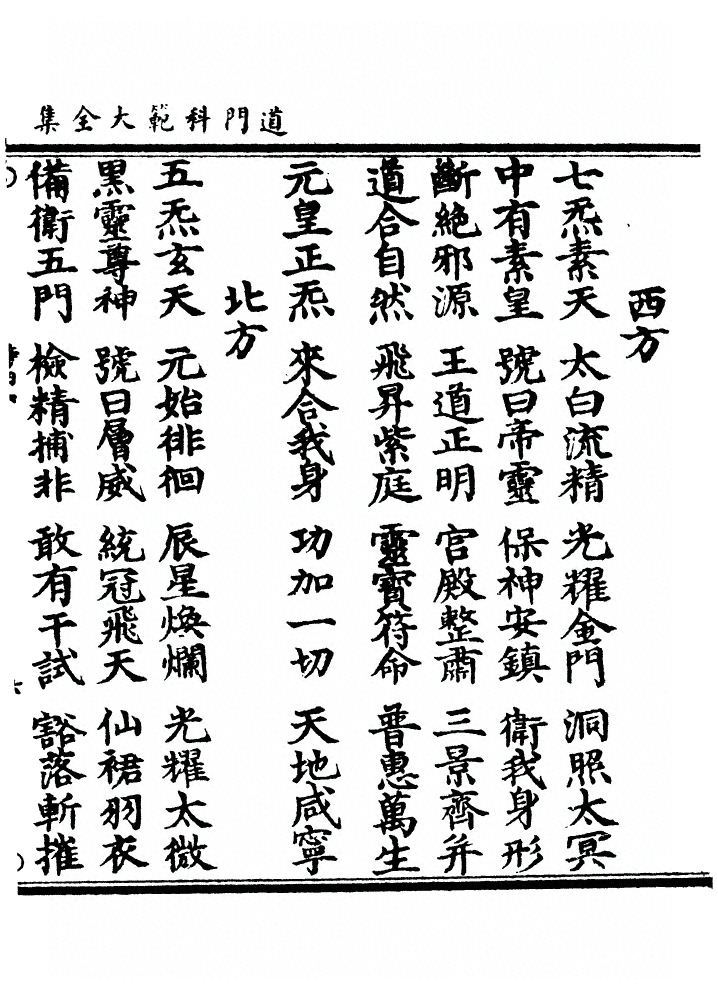 道門科範大全集
西方
七炁素天 太白流精 光耀金門 洞照太冥
中有素皇 號曰帝靈 保神安鎮 衛我身形
斷絶邪源 王道正明 宫殿整肅 三景齊并
道合自然 飛昇紫庭 靈寳符命 普惠萬生
元皇正炁 來合我身 功加一切 天地咸寧
北方
五炁玄天 元始徘徊 辰星煥爛 光耀太微
黒靈尊神 號曰層威 統冠飛天 仙裙羽衣
備衛五門 檢精捕非 敢有干試 豁落斬摧